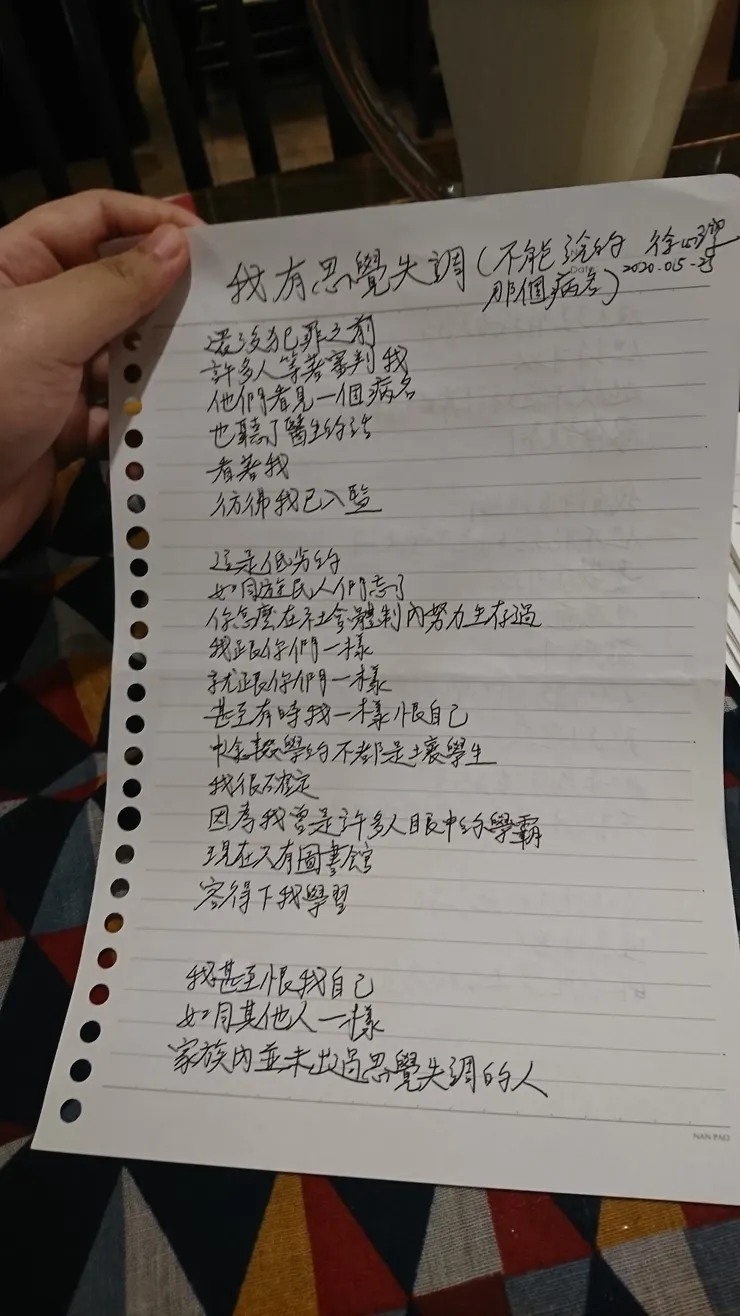 我有思覺失調(不能說的
那個病名)
徐
2020.05.25
還沒犯罪之前
許多人等著審判我
他們看見一個病名
也聽了醫生的話
看著我
彷彿我已入監
這是低劣的
如同族民人們忘了
你怎麼在社會體制內努力生存過
我跟你們一樣
就跟你們一樣
甚至有時我一樣恨自己
中輟學的不都是壞學生
我很不確定
因為我曾是許多人眼中的學霸
現在只有圖書館
容得下我學習
我甚至恨我自己
如同其他人一樣
家族內並未出過思覺失調的人
NAN PAO